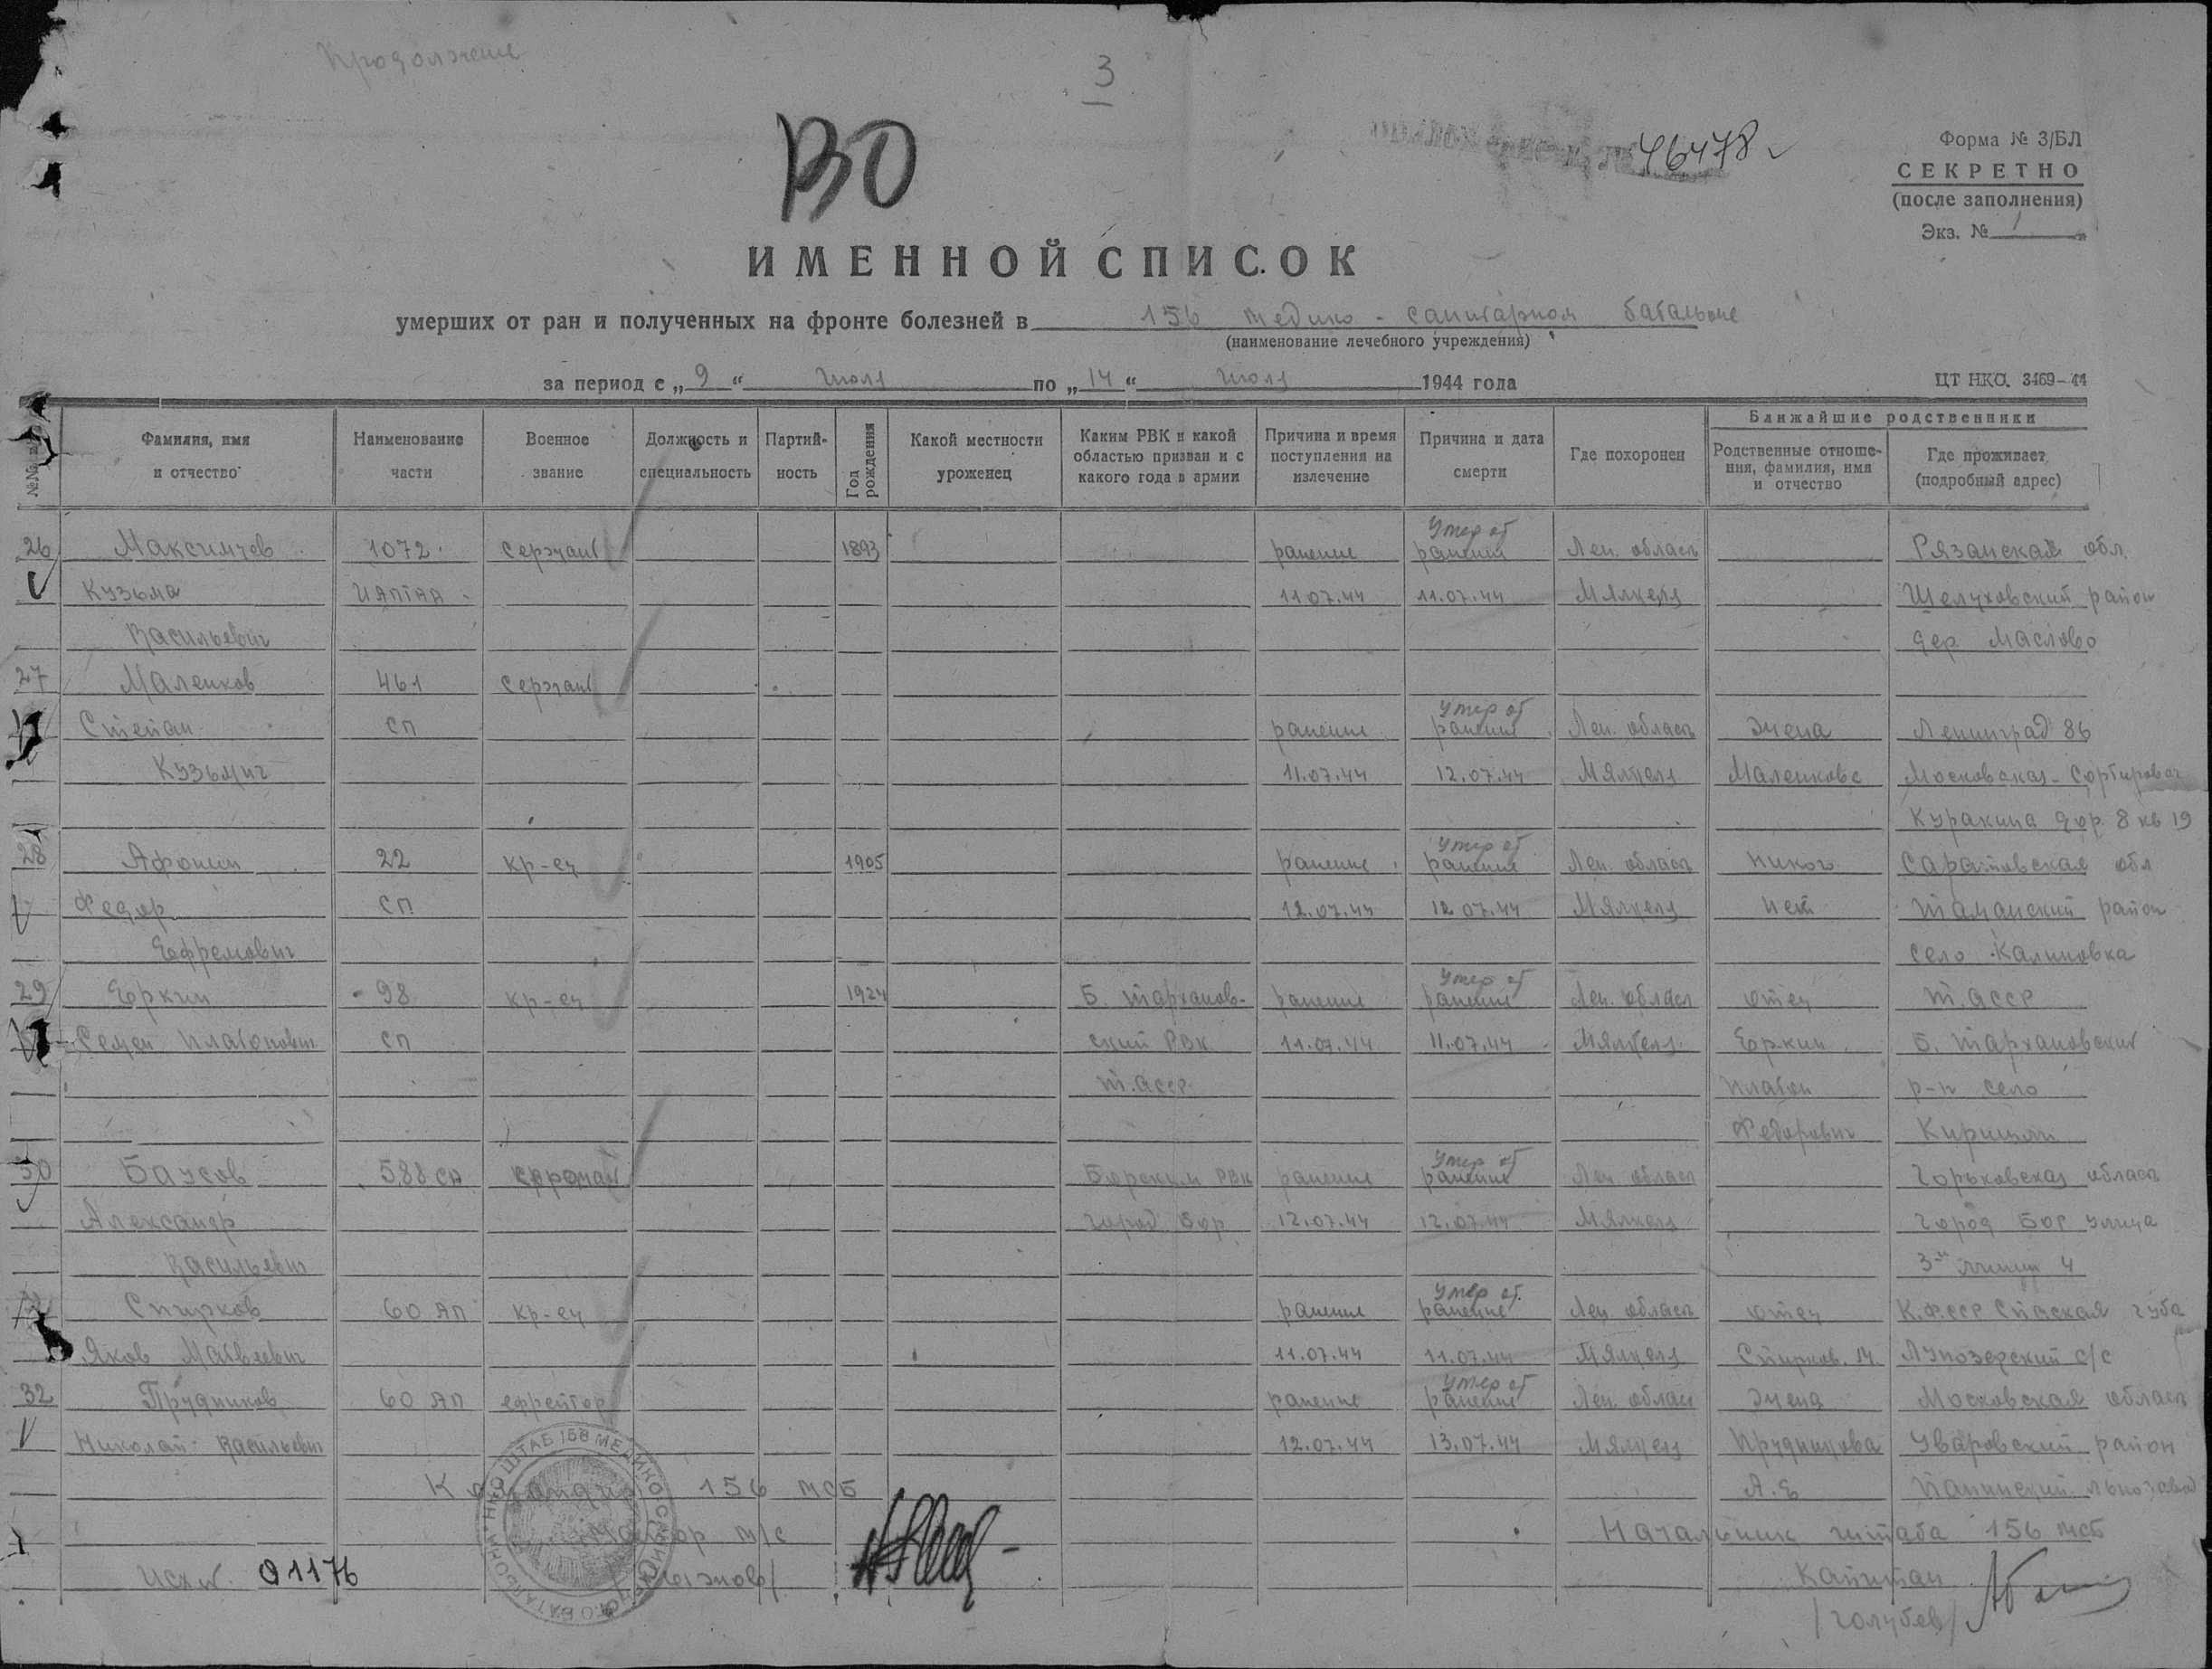 Продолжение
3
ВО
46478
Форма № 3/БЛ
СЕКРЕТНО
(после заполнения)
Экз. № 1
ИМЕННОЙ СПИСОК
умерших от ран и полученных на фронте болезней в 156 медико-санитарном батальоне
(наименование лечебного учреждения)
за период с „9“ июля по „14“ июля 1944 года
ЦТ НКО. 3469-44
Ближайшие родственники
Фамилия, имя и отчество
Наименование части
Военное звание
Должность и специальность
Партийность
Год рождения
Какой местности уроженец
Каким РВК и какой областью призван и с какого года в армии
Причина и время поступления на излечение
Причина и дата смерти
Где похоронен
Родственные отношения, фамилия, имя и отчество
Где проживает (подробный адрес)
Умер от
26 Максимчев 1072 сержант 1893 ранение ранения Лен. область Рязанская обл.
Кузьма ИАПТАП 11.07.44 11.07.44 Мялкеля Шелуховский район
Васильевич дер. Маслово
27 Маленков 461 сержант
Умер от
Степан СП ранение ранения Лен. область жена Ленинград 86
Кузьмич 11.07.44 12.07.44 Мялкеля Маленкова Московская-Сортировоч
Куракина дор. 8 кв 19
Умер от
28 Афонин 22 кр-ец 1905 ранение ранения Лен. область никого Саратовская обл
Федор СП 12.07.44 12.07.44 Мялкеля нет район
Ефремович село Калиновка
Умер от
29 Еркин 98 кр-ец 1924 Б. Тарханов- ранение ранения Лен. област отец Т.АССР
Семен Платонович СП ский РВК 11.07.44 11.07.44 Мялкеля Еркин Б. Тархановский
Т.АССР Платон р-н село
Федорович
Умер от
30 Баусов 588 СП сержант Борским РВК ранение ранения Лен. област Горьковская область
Александр город Бор 12.07.44 12.07.44 Мялкеля город Бор улица
Васильевич 3-я линия 4
Умер от
Спирков 60 АП кр-ец ранение ранения Лен. область отец К.Ф.ССР Спаская губа
Яков Матвеевич 11.07.44 11.07.44 Мялкеля Спирков М с/с
Умер от
32 Прудников 60 АП ефрейтор ранение ранения Лен. област жена Московская область
Николай Васильевич 12.07.44 13.07.44 Мялкеля Прудникова Уваровский район
А.Е льнозавод
Командир 156 МСБ
майор м/с
Начальник штаба 156 МСБ
Исх.№ 01176
Капитан
/Голубев/